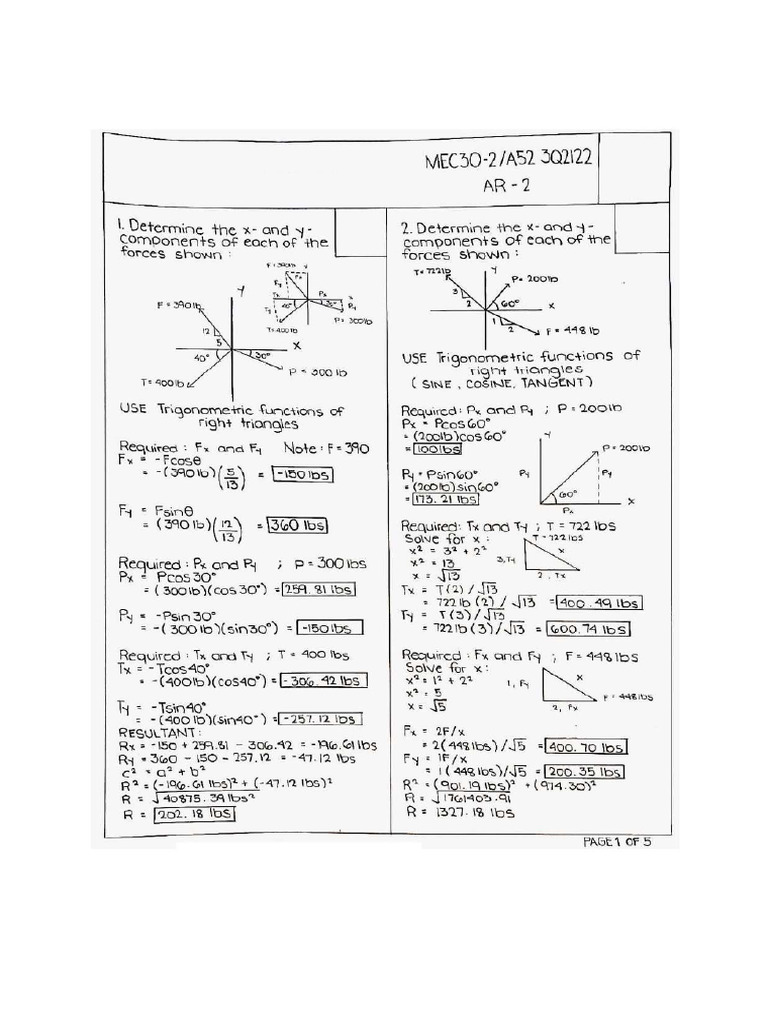 MEC30-2/A52 3Q2122
AR - 2
1. Determine the x- and y-
components of each of the
forces shown :
F = 390lb
Y
Fx
Fy
Tx
Px
x
Ty
40°
30°
Py
P = 300lb
T=400lb
Y
F = 390lb
12
5
X
40°
30°
P = 300 lb
T = 400lb
USE Trigonometric functions of
right triangles
Required : Fx and Fy Note : F = 390
Fx = -Fcosθ
= -(390lb)(5/13) = -150lbs
Fy = Fsinθ
= (390lb)(12/13) = 360 lbs
Required : Px and Py ; P = 300lbs
Px = Pcos30°
= (300lb)(cos30°) = 259.81 lbs
Py = -Psin30°
= -(300lb)(sin30°) = -150lbs
Required : Tx and Ty ; T = 400 lbs
Tx = -Tcos40°
= -(400lb)(cos40°) = -306.42 lbs
Ty = -Tsin40°
= -(400lb)(sin40°) = -257.12 lbs
RESULTANT:
Rx = -150 + 259.81 - 306.42 = -196.61 lbs
Ry = 360 - 150 - 257.12 = -47.12 lbs
c² = a² + b²
R² = (-196.61 lbs)² + (-47.12 lbs)²
R = √40875.39 lbs²
R = 202.18 lbs
2. Determine the x- and y-
components of each of the
forces shown :
T= 722lb
Y
P= 200lb
3
2
60°
X
1
2
F = 448 lb
USE Trigonometric functions of
right triangles
( SINE , COSINE, TANGENT)
Required : Px and Py ; P = 200lb
Px = Pcos60°
= (200lb)cos60°
= 100lbs
Py = Psin60°
= (200lb)sin60°
= 173.21 lbs
Y
P = 200lb
Py
Py
60°
X
Px
Required: Tx and Ty ; T = 722 lbs
Solve for x :
x² = 3² + 2²
x² = 13
x = √13
T = 722lbs
3, Ty
x
2 , Tx
Tx = T(2) / √13
= 722lb (2) / √13 = 400.49 lbs
Ty = T(3) / √13
= 722lb (3) / √13 = 600.74 lbs
Required : Fx and Fy ; F = 448lbs
Solve for x :
x² = 1² + 2²
x² = 5
x = √5
1, Fy
x
F = 448lbs
2, Fx
Fx = 2F/x
= 2(448lbs)/√5 = 400.70 lbs
Fy = 1F/x
= 1(448lbs)/√5 = 200.35 lbs
R² = (901.19 lbs)² + (974.30)²
R = √1761403.91
R = 1327.18 lbs
PAGE 1 OF 5